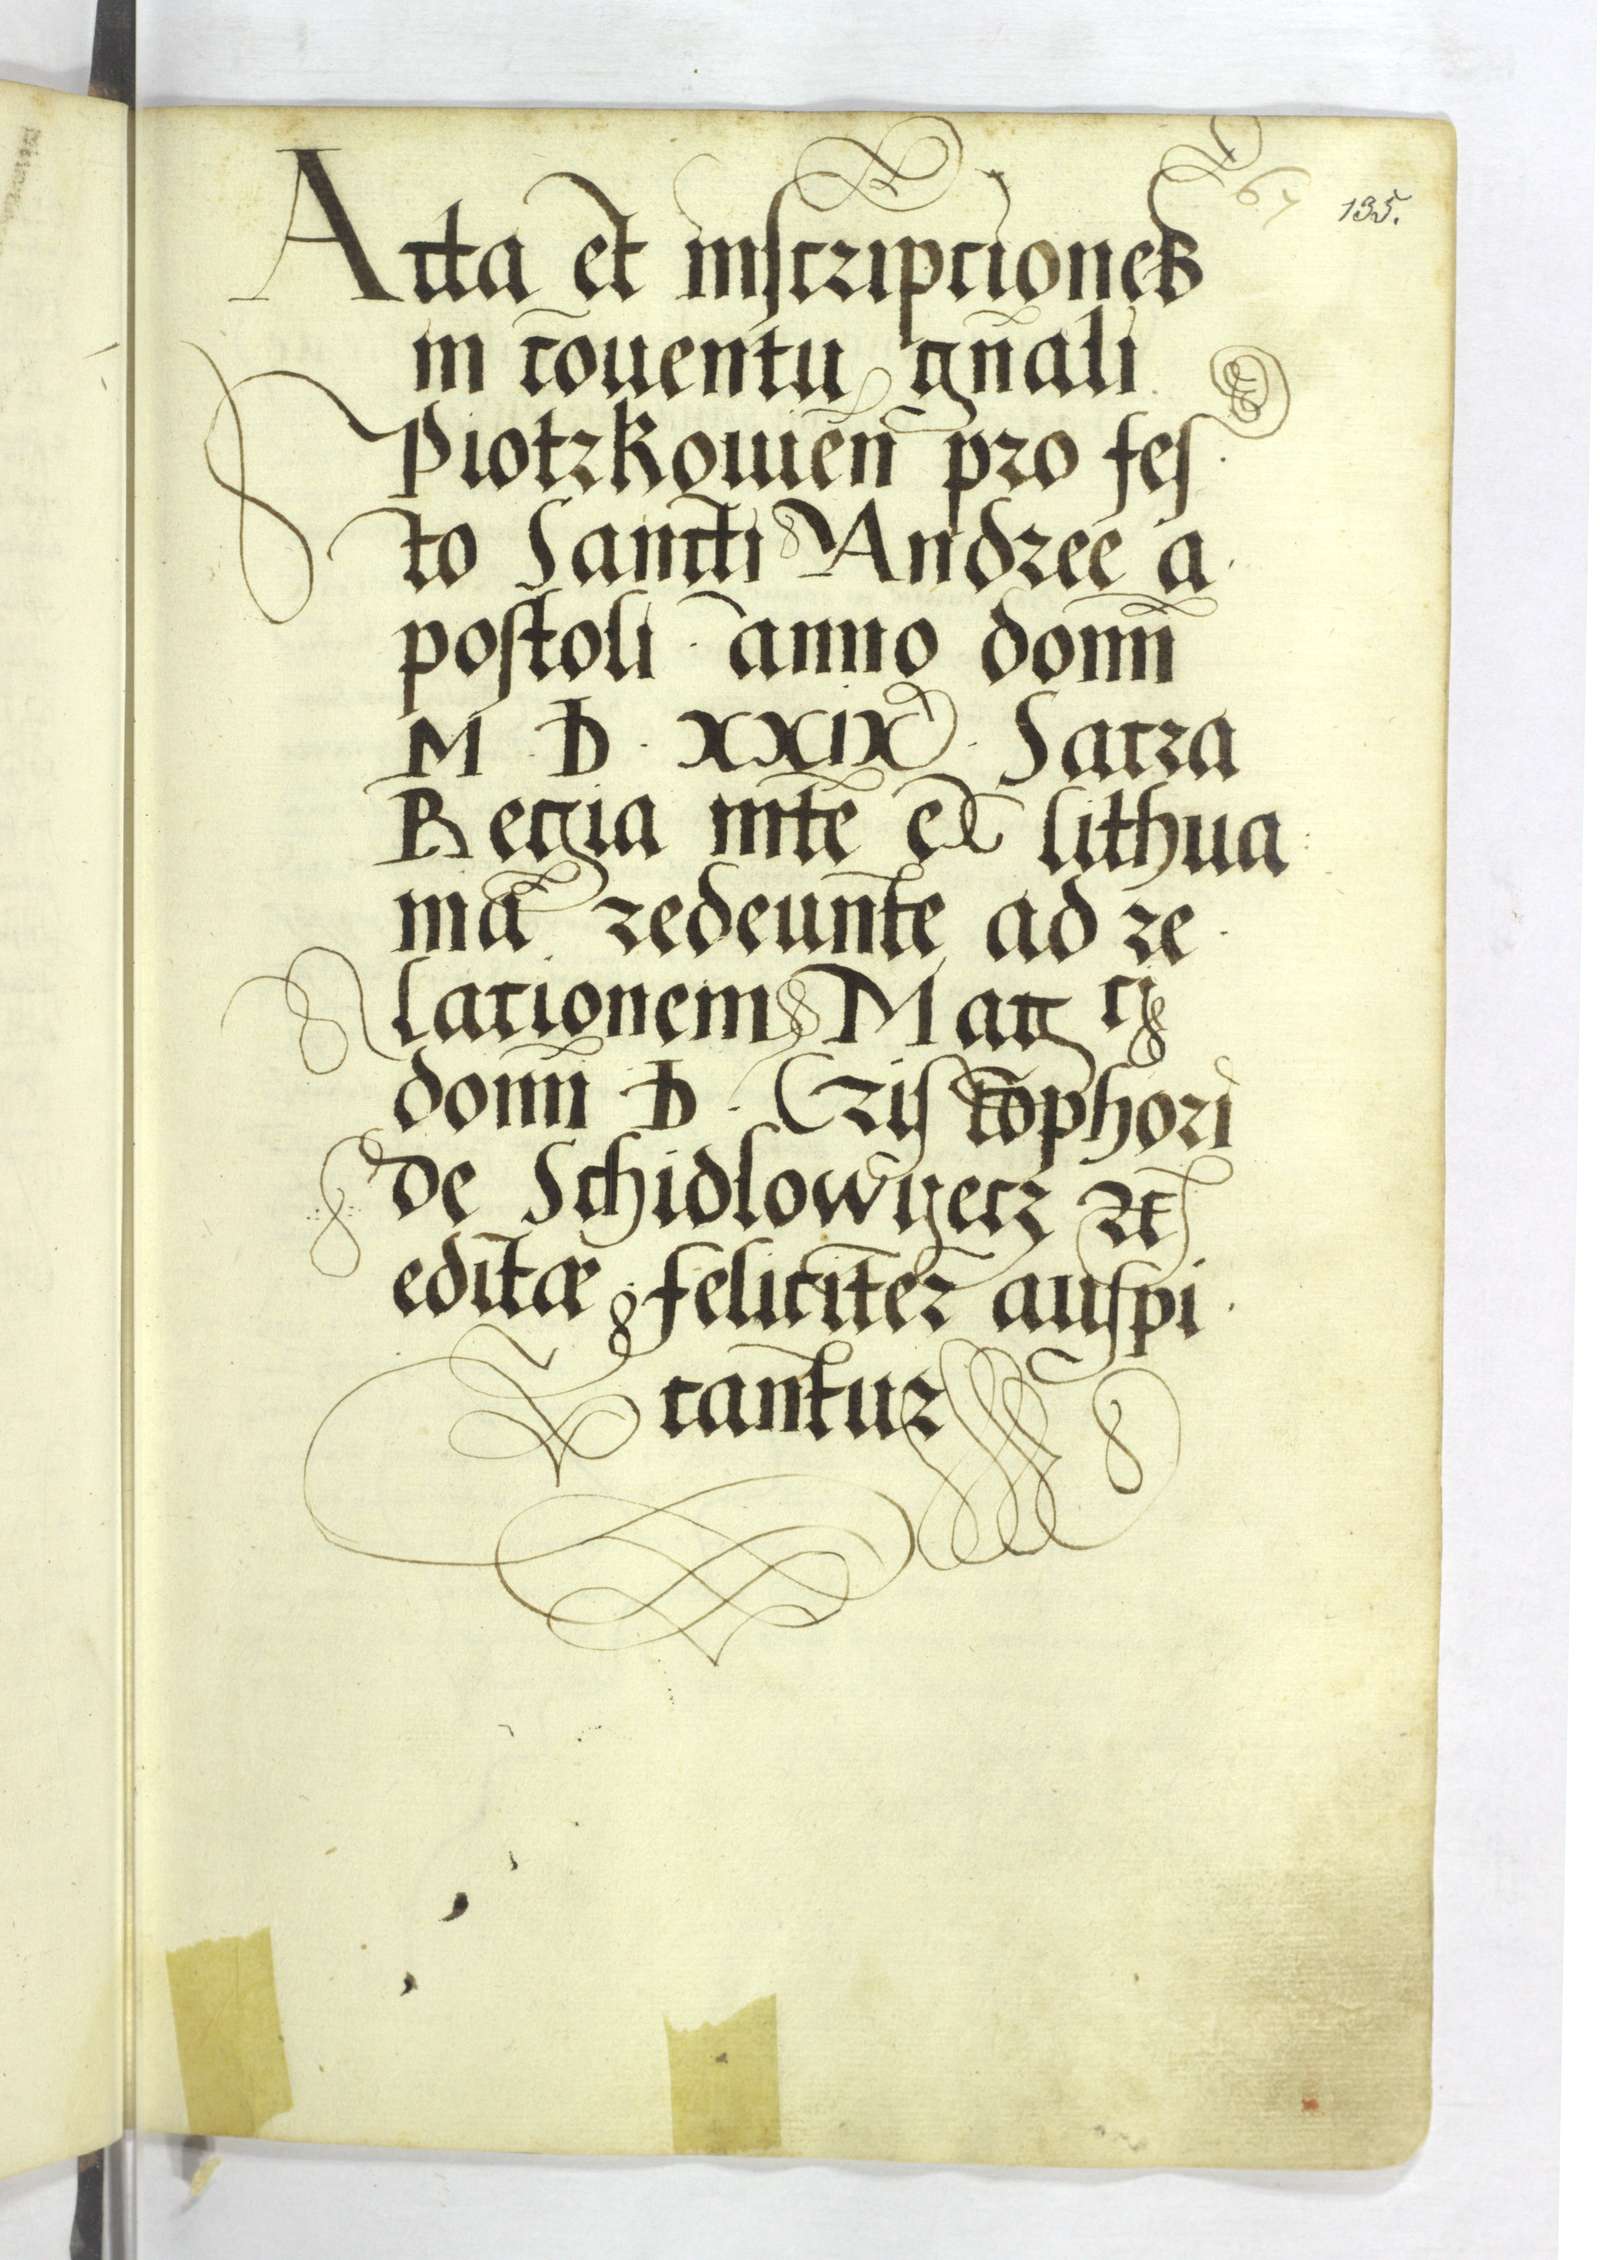 67 135.
Acta et inscripciones
in cōuentu gn̄ali
Piotrkouien̄ pro fes
to Sancti Andree a
postoli anno domī
M D XXIX Sacra
Regia mte ex lithua
niā redeunte ad re
lacionem Mag ci
domī D. Cristophori
de Schidlowyecz zc
editæ feliciter auspi
cantur